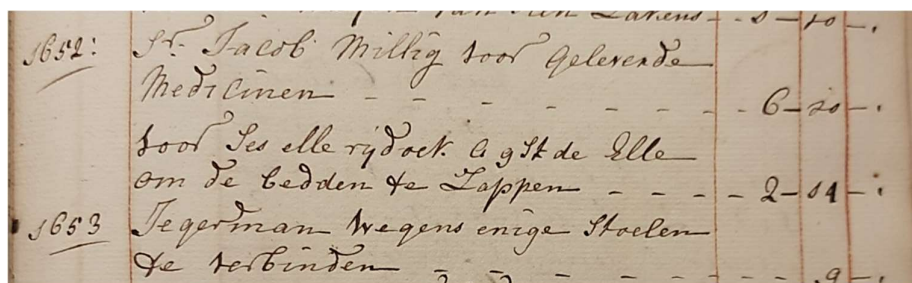 van een Lakens - - 10 - .
1652: Sr. Jacob Millig voor geleverde
Medicinen - - - - - - - 6 - 10 - .
voor Ses elle rijdoek a 9 st de Elle
om de bedden te Lappen - - - - 2 - 14 - .
1653 Jegerman wegens enige Stoelen
te verbinden - - - - - - 9 - .